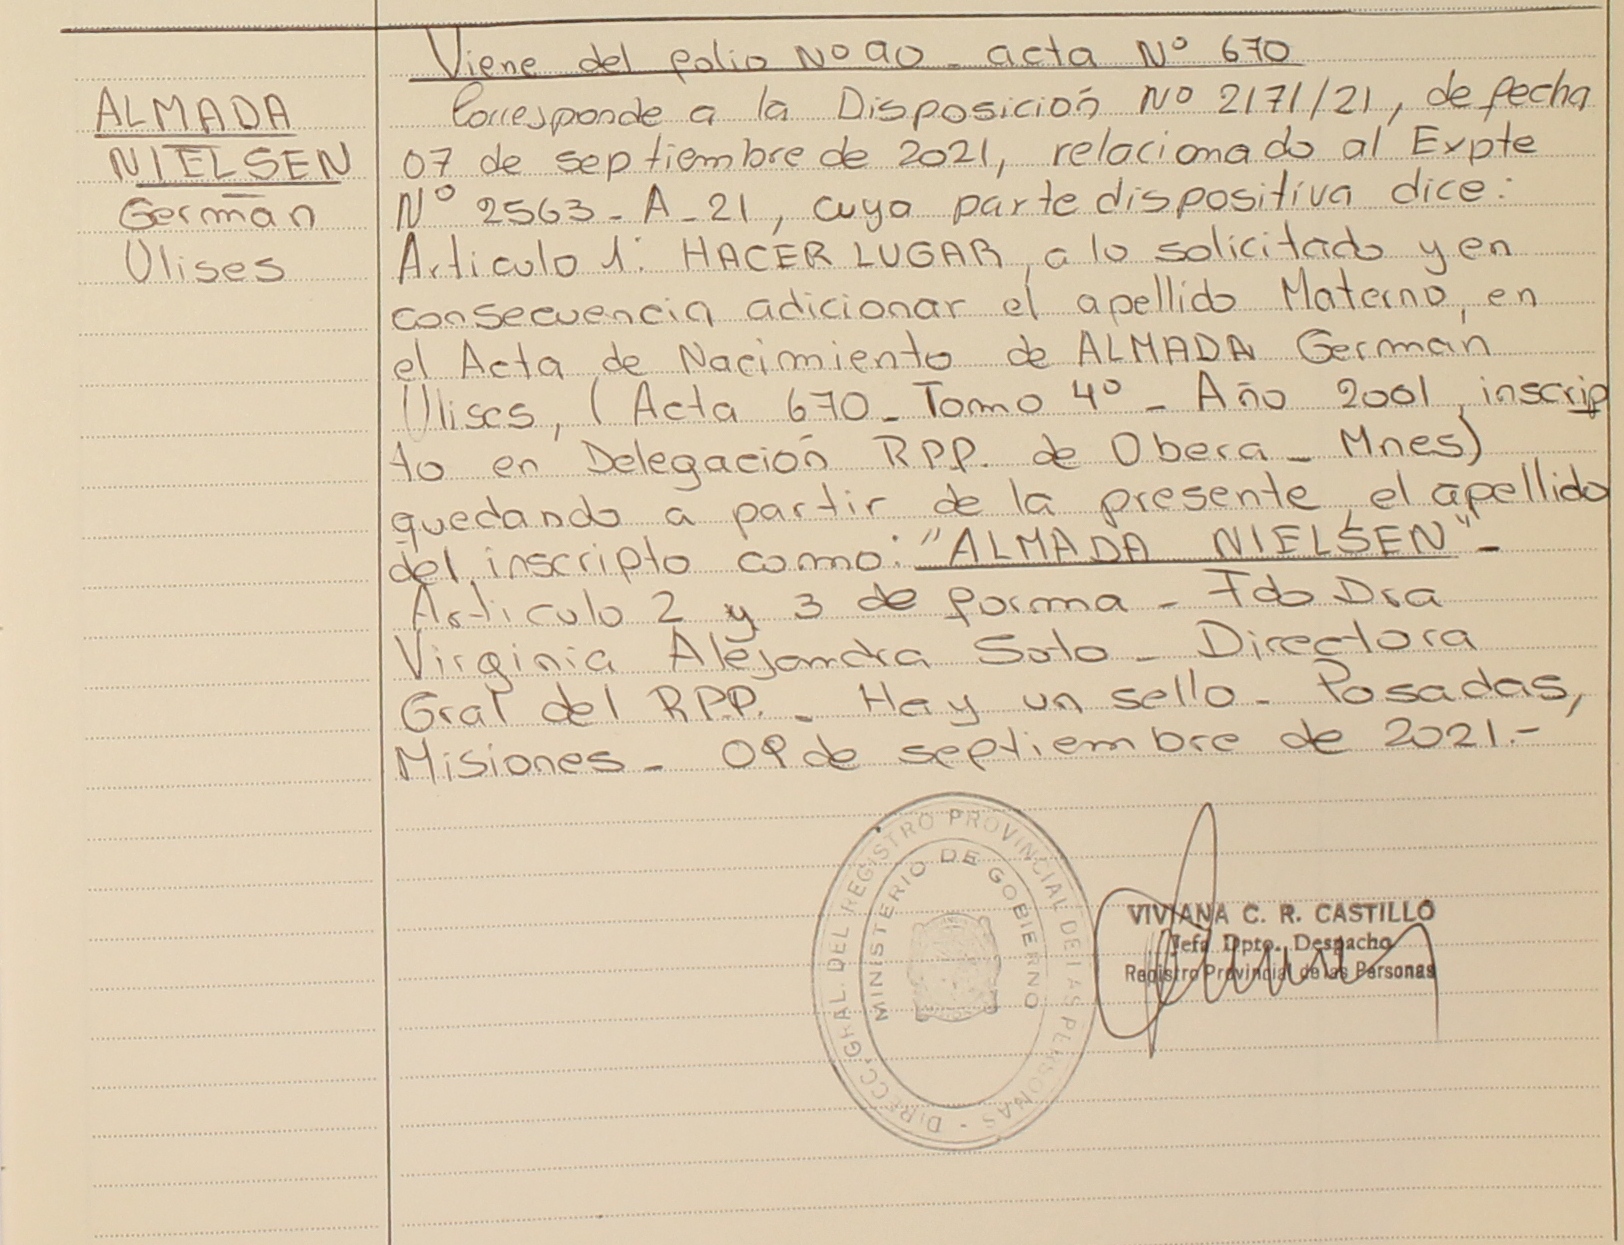 ALMADA
NIELSEN
Germán
Ulises
Viene del folio Nº 90 - acta Nº 670
Corresponde a la Disposición Nº 2171/21, de fecha
07 de septiembre de 2021, relacionado al Expte
Nº 2563-A-21, cuya parte dispositiva dice:
Articulo 1: HACER LUGAR, a lo solicitado y en
consecuencia adicionar el apellido Materno, en
el Acta de Nacimiento de ALMADA Germán
Ulises, (Acta 670 - Tomo 4º - Año 2001, inscrip
to en Delegación RPP. de Obera - Mnes)
quedando a partir de la presente, el apellido
del inscripto como: "ALMADA NIELSEN" -
Articulo 2 y 3 de forma - Fdo Dra
Virginia Alejandra Soto - Directora
Gral del RPP. - Hay un sello - Posadas,
Misiones - 09 de septiembre de 2021.-
DIRECC. GRAL. DEL REGISTRO PROVINCIAL DE LAS PERSONAS -
MINISTERIO DE GOBIERNO
VIVIANA C. R. CASTILLO
Jefa Dpto. Despacho
Registro Provincial de las Personas